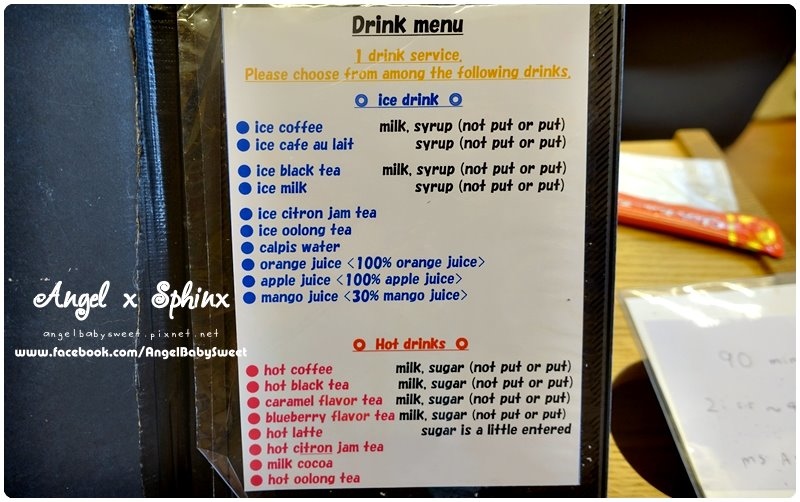 Drink menu
1 drink service.
Please choose from among the following drinks.
ice drink
ice coffee milk, syrup (not put or put)
ice cafe au lait syrup (not put or put)
ice black tea milk, syrup (not put or put)
ice milk syrup (not put or put)
ice citron jam tea
ice oolong tea
calpis water
orange juice <100% orange juice>
apple juice <100% apple juice>
mango juice <30% mango juice>
Hot drinks
hot coffee milk, sugar (not put or put)
hot black tea milk, sugar (not put or put)
caramel flavor tea milk, sugar (not put or put)
blueberry flavor tea milk, sugar (not put or put)
hot latte sugar is a little entered
hot citron jam tea
milk cocoa
hot oolong tea
Angel x Sphinx
angelbabysweet.pixnet.net
www.facebook.com/AngelBabySweet
90